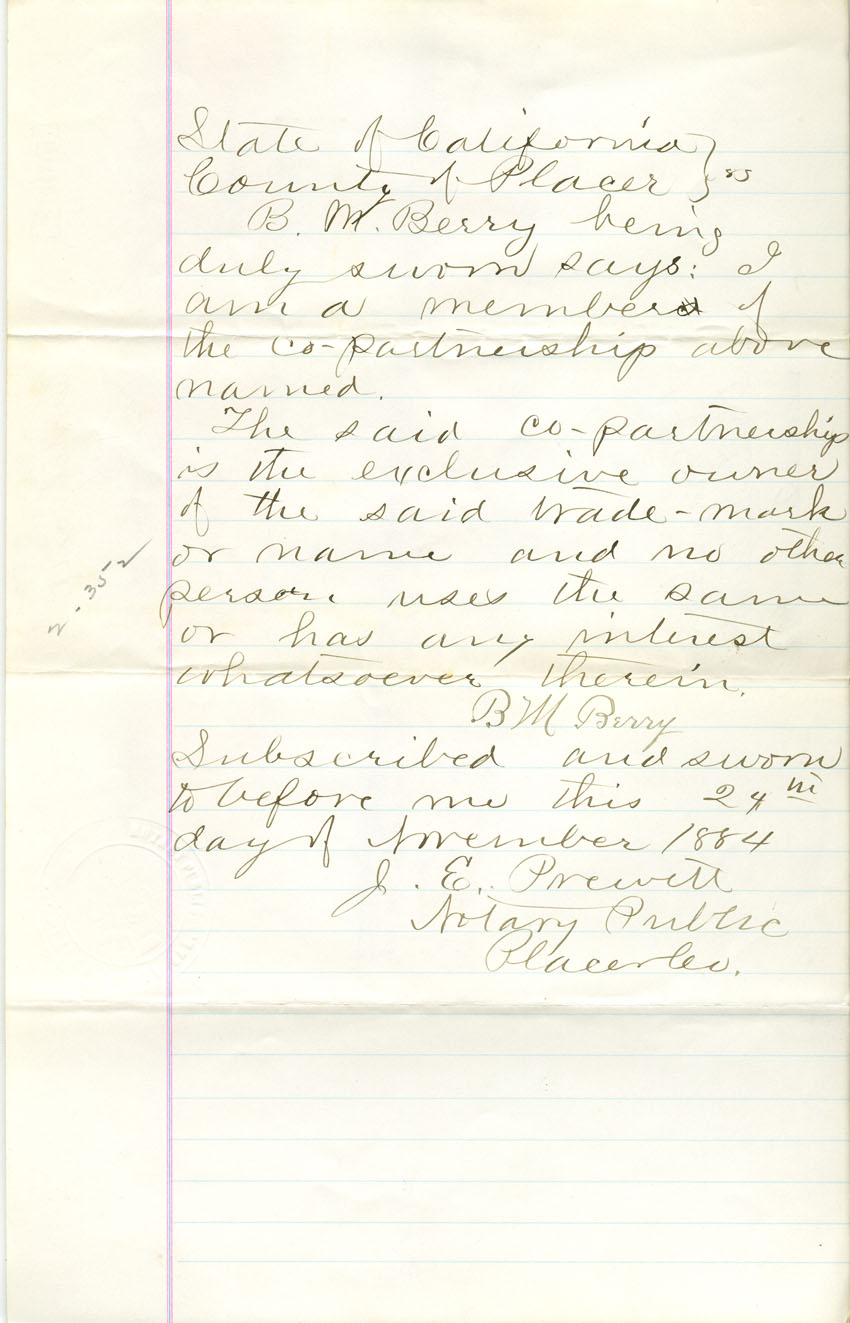 State of California } ss
County of Placer
B. M. Berry being
duly sworn says: I
am a member of
the co-partnership above
named.
The said co-partnership
is the exclusive owner
of the said trade-mark
or name and no other
person uses the same
or has any interest
whatsoever therein.
B M Berry
Subscribed and sworn
to before me this 24th
day of November 1884
J. E. Prewitt
Notary Public
Placer Co.
2-352